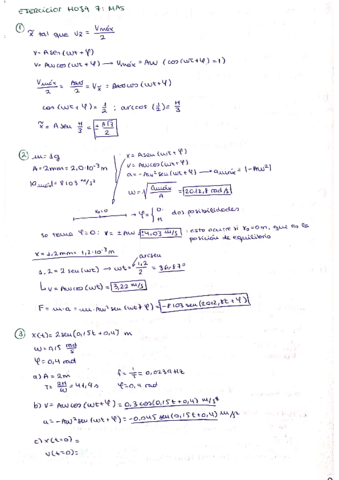 EJERCICIOS HOJA 7: MAS
① x̃ tal que v_x̃ = Vmáx/2
x = A sen(ωt+φ)
v = Aω cos(ωt+φ) → Vmáx = Aω (cos(ωt+φ)=1)
Vmáx/2 = Aω/2 = V_x̃ = Aω cos(ωt+φ)
cos(ωt+φ) = 1/2 ; arccos(1/2) = π/3
x̃ = A sen π/3 = ± A√3/2
② m = 1g
A = 2mm = 2,0·10⁻³m
x = A sen(ωt+φ)
v = Aω cos(ωt+φ)
a = -Aω² sen(ωt+φ) → amáx = |-Aω²|
ω = √(amáx/A) = 2012,8 rad/s
x₀=0 → φ = 0, π dos posibilidades
se toma φ=0: v = ± Aω = 4,03 m/s · esto ocurre si x₀=0m, que es la
posición de equilibrio
x = 1,2mm = 1,2·10⁻³m
arcsen
1,2 = 2 sen(ωt) → ωt = 1,2/2 = 36,87º
↳ v = Aω cos(ωt) = 3,22 m/s
F = m·a = -m·Aω² sen(ωt+φ) = -8,103 sen(2012,8t+φ)
③ x(t) = 2 sen(0,15t+0,4) m
ω = 0,15 rad/s
φ = 0,4 rad
a) A = 2m f = 1/T = 0,0239 Hz
T = 2π/ω = 41,9 s φ = 0,4 rad
b) v = Aω cos(ωt+φ) = 0,3 cos(0,15t+0,4) m/s
a = -Aω² sen(ωt+φ) = -0,045 sen(0,15t+0,4) m/s²
c) x(t=0) =
v(t=0) =